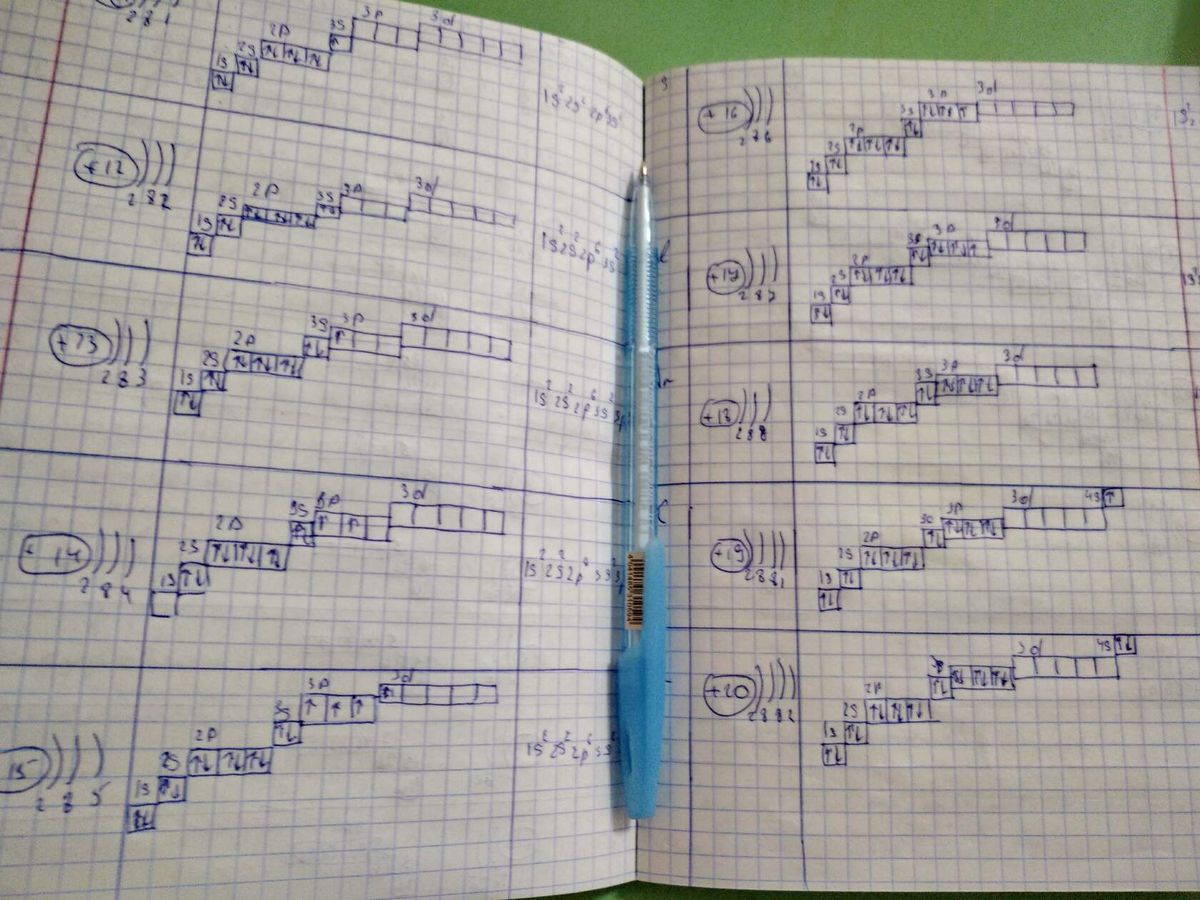 2 8 1
1s 2s 2p 3s 3p 3d
1s² 2s² 2p⁶ 3s¹
+12
2 8 2
1s 2s 2p 3s 3p 3d
1s² 2s² 2p⁶ 3s²
+13
2 8 3
1s 2s 2p 3s 3p 3d
1s² 2s² 2p⁶ 3s² 3p
+14
2 8 4
1s 2s 2p 3s 3p 3d
1s² 2s² 2p⁶ 3s² 3p
15
2 8 5
1s 2s 2p 3s 3p 3d
1s² 2s² 2p⁶ 3s²
S
+16
2 8 6
1s 2s 2p 3s 3p 3d
+17
2 8 7
1s 2s 2p 3s 3p 3d
+18
2 8 8
1s 2s 2p 3s 3p 3d
+19
2 8 8 1
1s 2s 2p 3s 3p 3d 4s
+20
2 8 8 2
1s 2s 2p 3d 4s